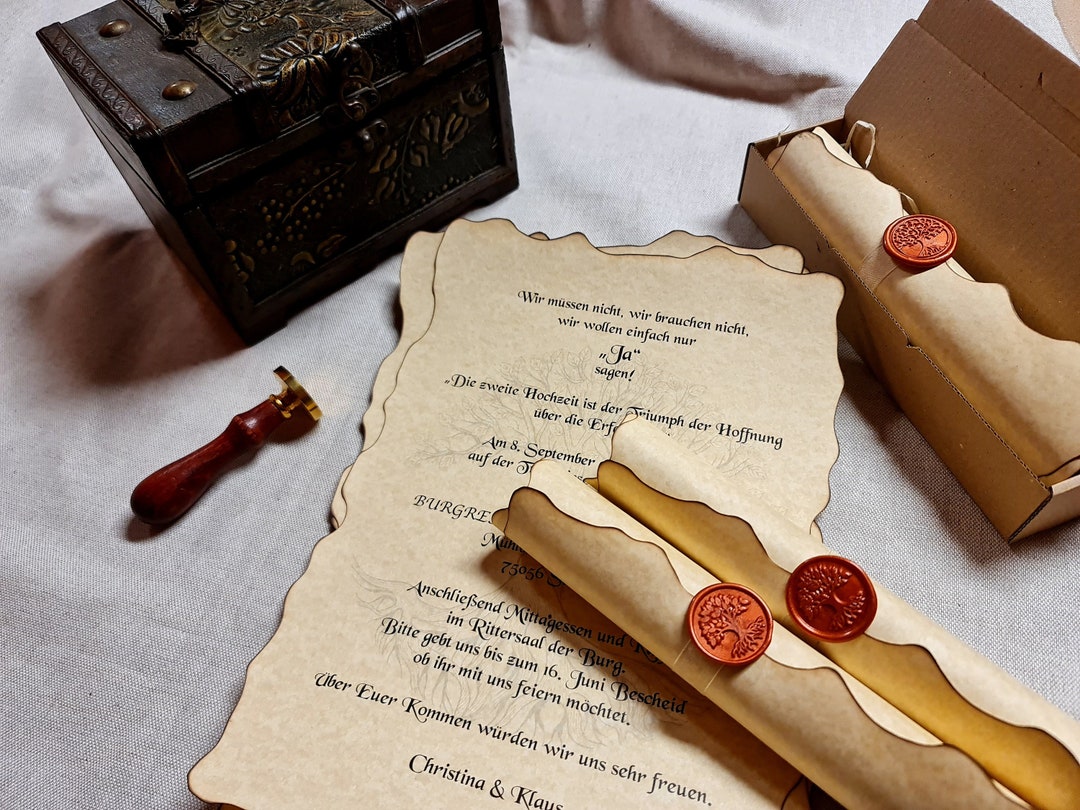 Wir müssen nicht, wir brauchen nicht,
wir wollen einfach nur
„Ja“
sagen!
„Die zweite Hochzeit ist der Triumph der Hoffnung
über die
Am 8. September
auf der
Anschließend Mittagessen und
im Rittersaal der Burg.
Bitte gebt uns bis zum 16. Juni Bescheid
ob ihr mit uns feiern möchtet.
Über Euer Kommen würden wir uns sehr freuen.
Christina & Klaus